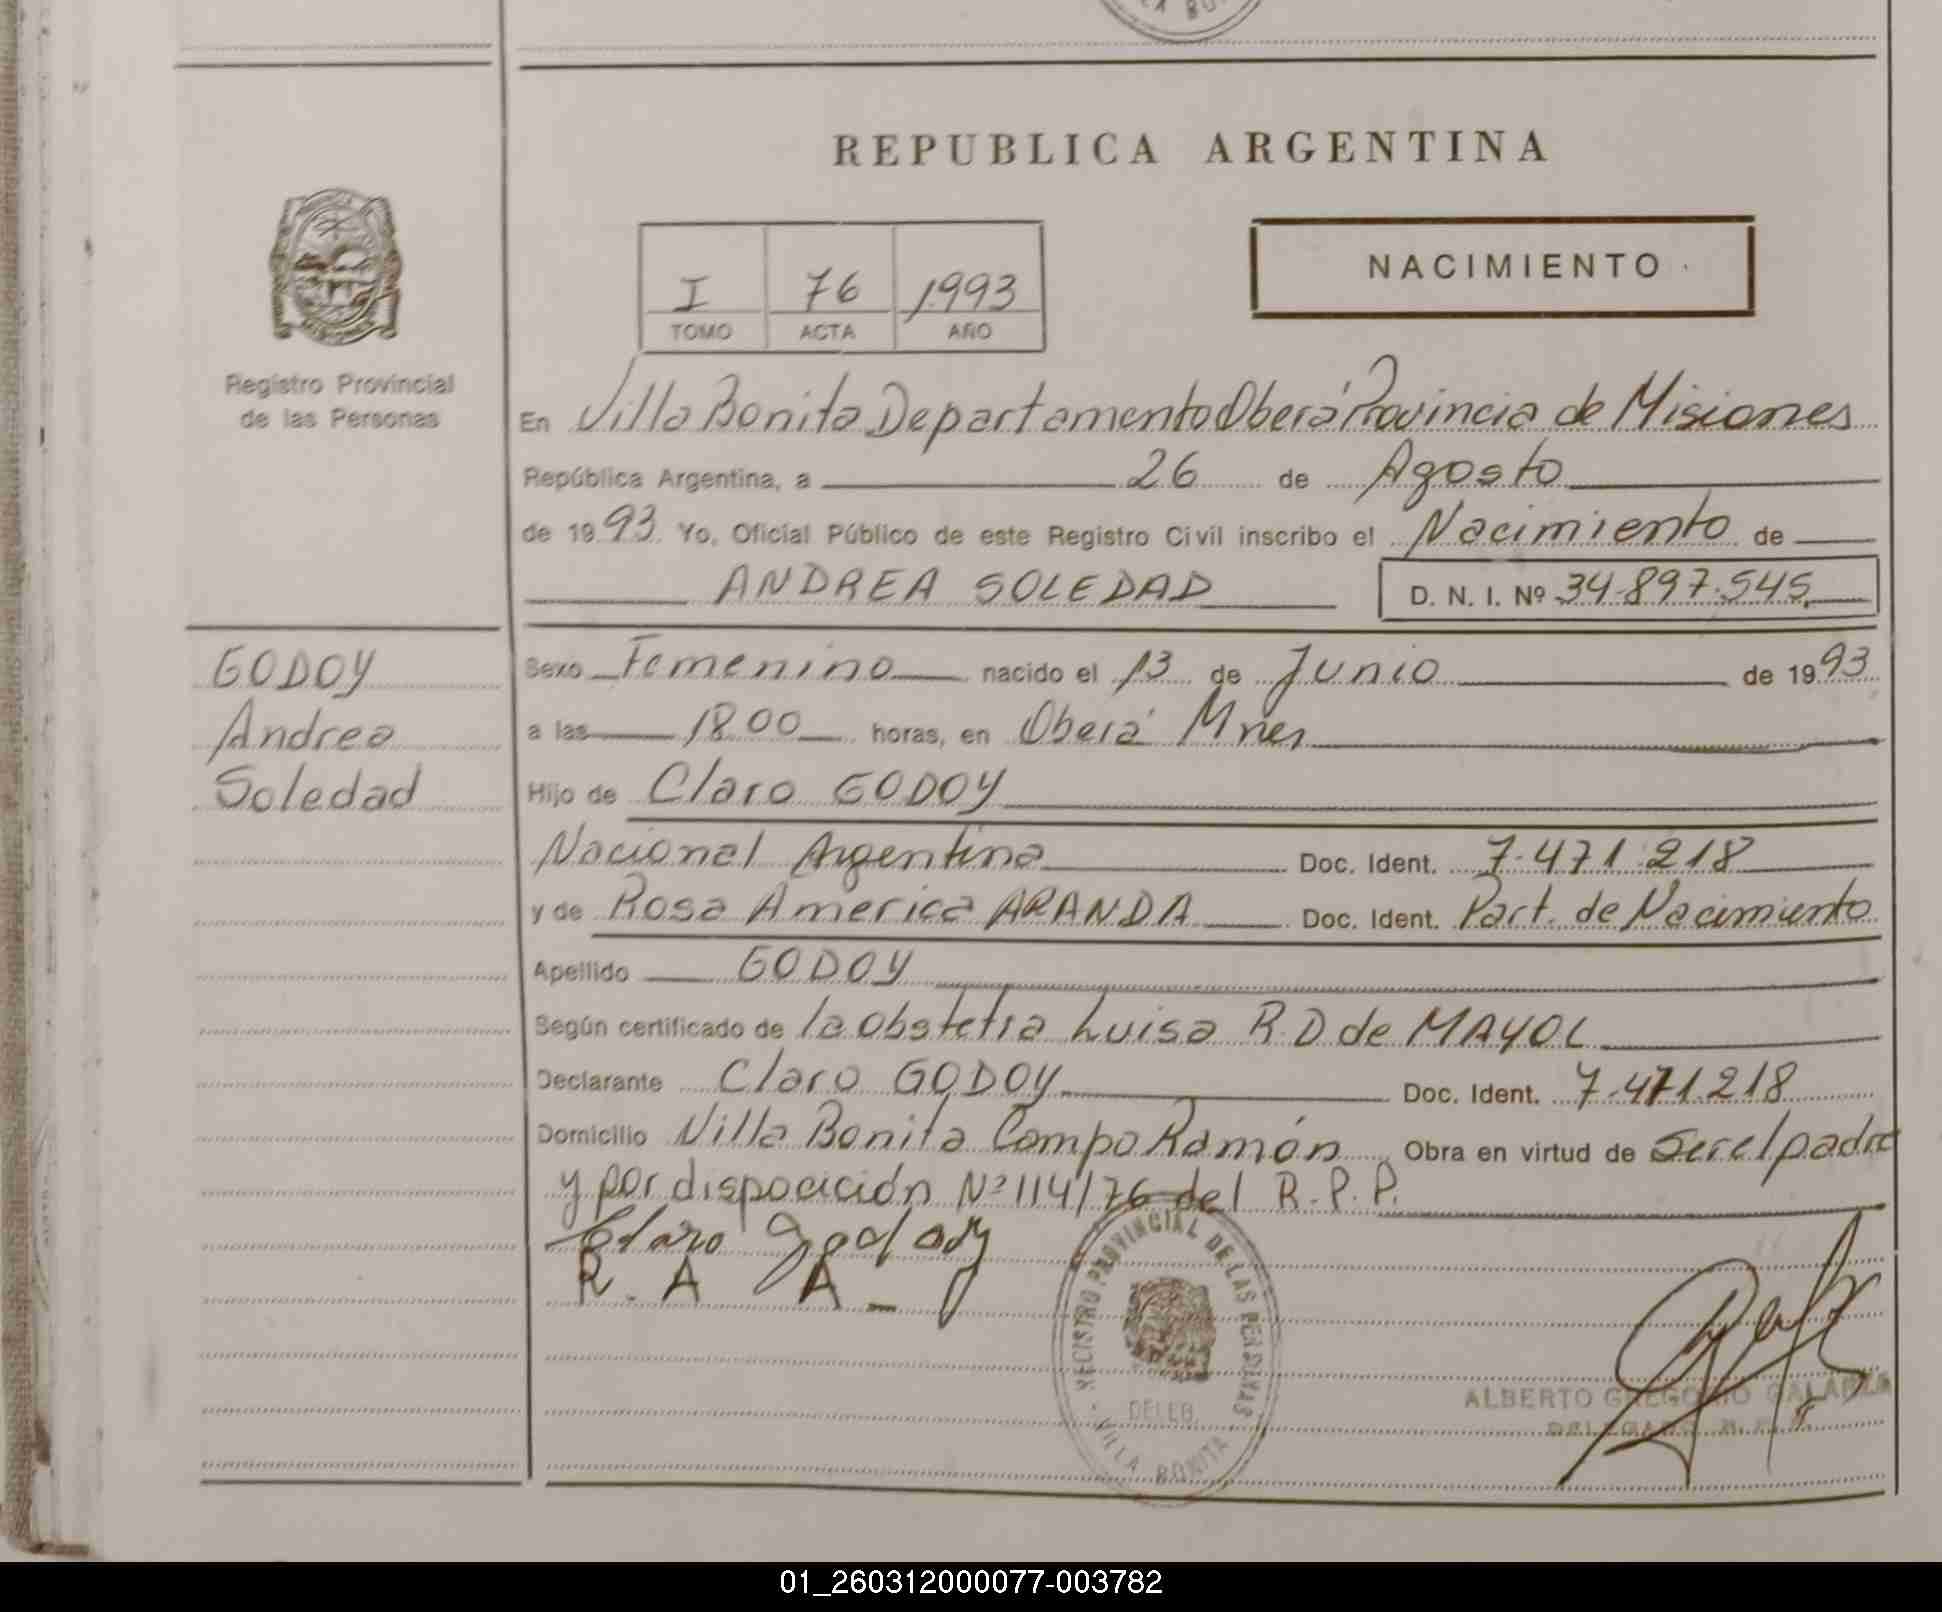 LA BO
REPUBLICA ARGENTINA
NACIMIENTO
I 76 1993
TOMO ACTA AÑO
Registro Provincial
de las Personas
En Villa Bonita Departamento Oberá Provincia de Misiones
República Argentina, a 26 de Agosto
de 1993. Yo, Oficial Público de este Registro Civil inscribo el Nacimiento de
ANDREA SOLEDAD D. N. I. Nº 34.897.545
GODOY
Andrea
Soledad
Sexo Femenino nacido el 13 de Junio de 1993
a las 18.00 horas, en Oberá Mnes
Hijo de Claro GODOY
Nacional Argentina Doc. Ident. 7.471.218
y de Rosa America ARANDA Doc. Ident. Part. de Nacimiento
Apellido GODOY
Según certificado de la obstetra Luisa R.D de MAYOL
Declarante Claro GODOY Doc. Ident. 7.471.218
Domicilio Villa Bonita Campo Ramón Obra en virtud de ser el padre
y por dispocición Nº 114/76 del R.P.P.
Claro godoy
R. A A_
REGISTRO PROVINCIAL DE LAS PERSONAS
VILLA BONITA
ALBERTO GREGORIO GALARZA
01_260312000077-003782